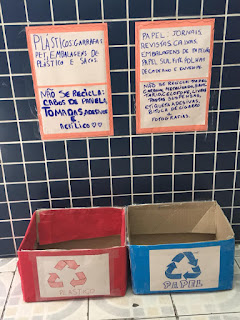 PLÁSTICOS: GARRAFAS
PET, EMBALAGENS DE
PLÁSTICO E SACOS
NÃO SE RECICLA:
CABOS DE PANELA
TOMADAS, ADESIVOS E
ACRÍLICO
PAPEL: JORNAIS
REVISTAS CAIXAS
EMBALAGENS DE PAPELÃO
PAPEL SULFITE FOLHAS
DE CADERNO E ENVELOPE
NÃO SE RECICLA: PAPEL
CARBONO
ETIQUETAS ADESIVAS,
BITUCA DE CIGARRO
E
FOTOGRAFIAS.
PLÁSTICO
PAPEL